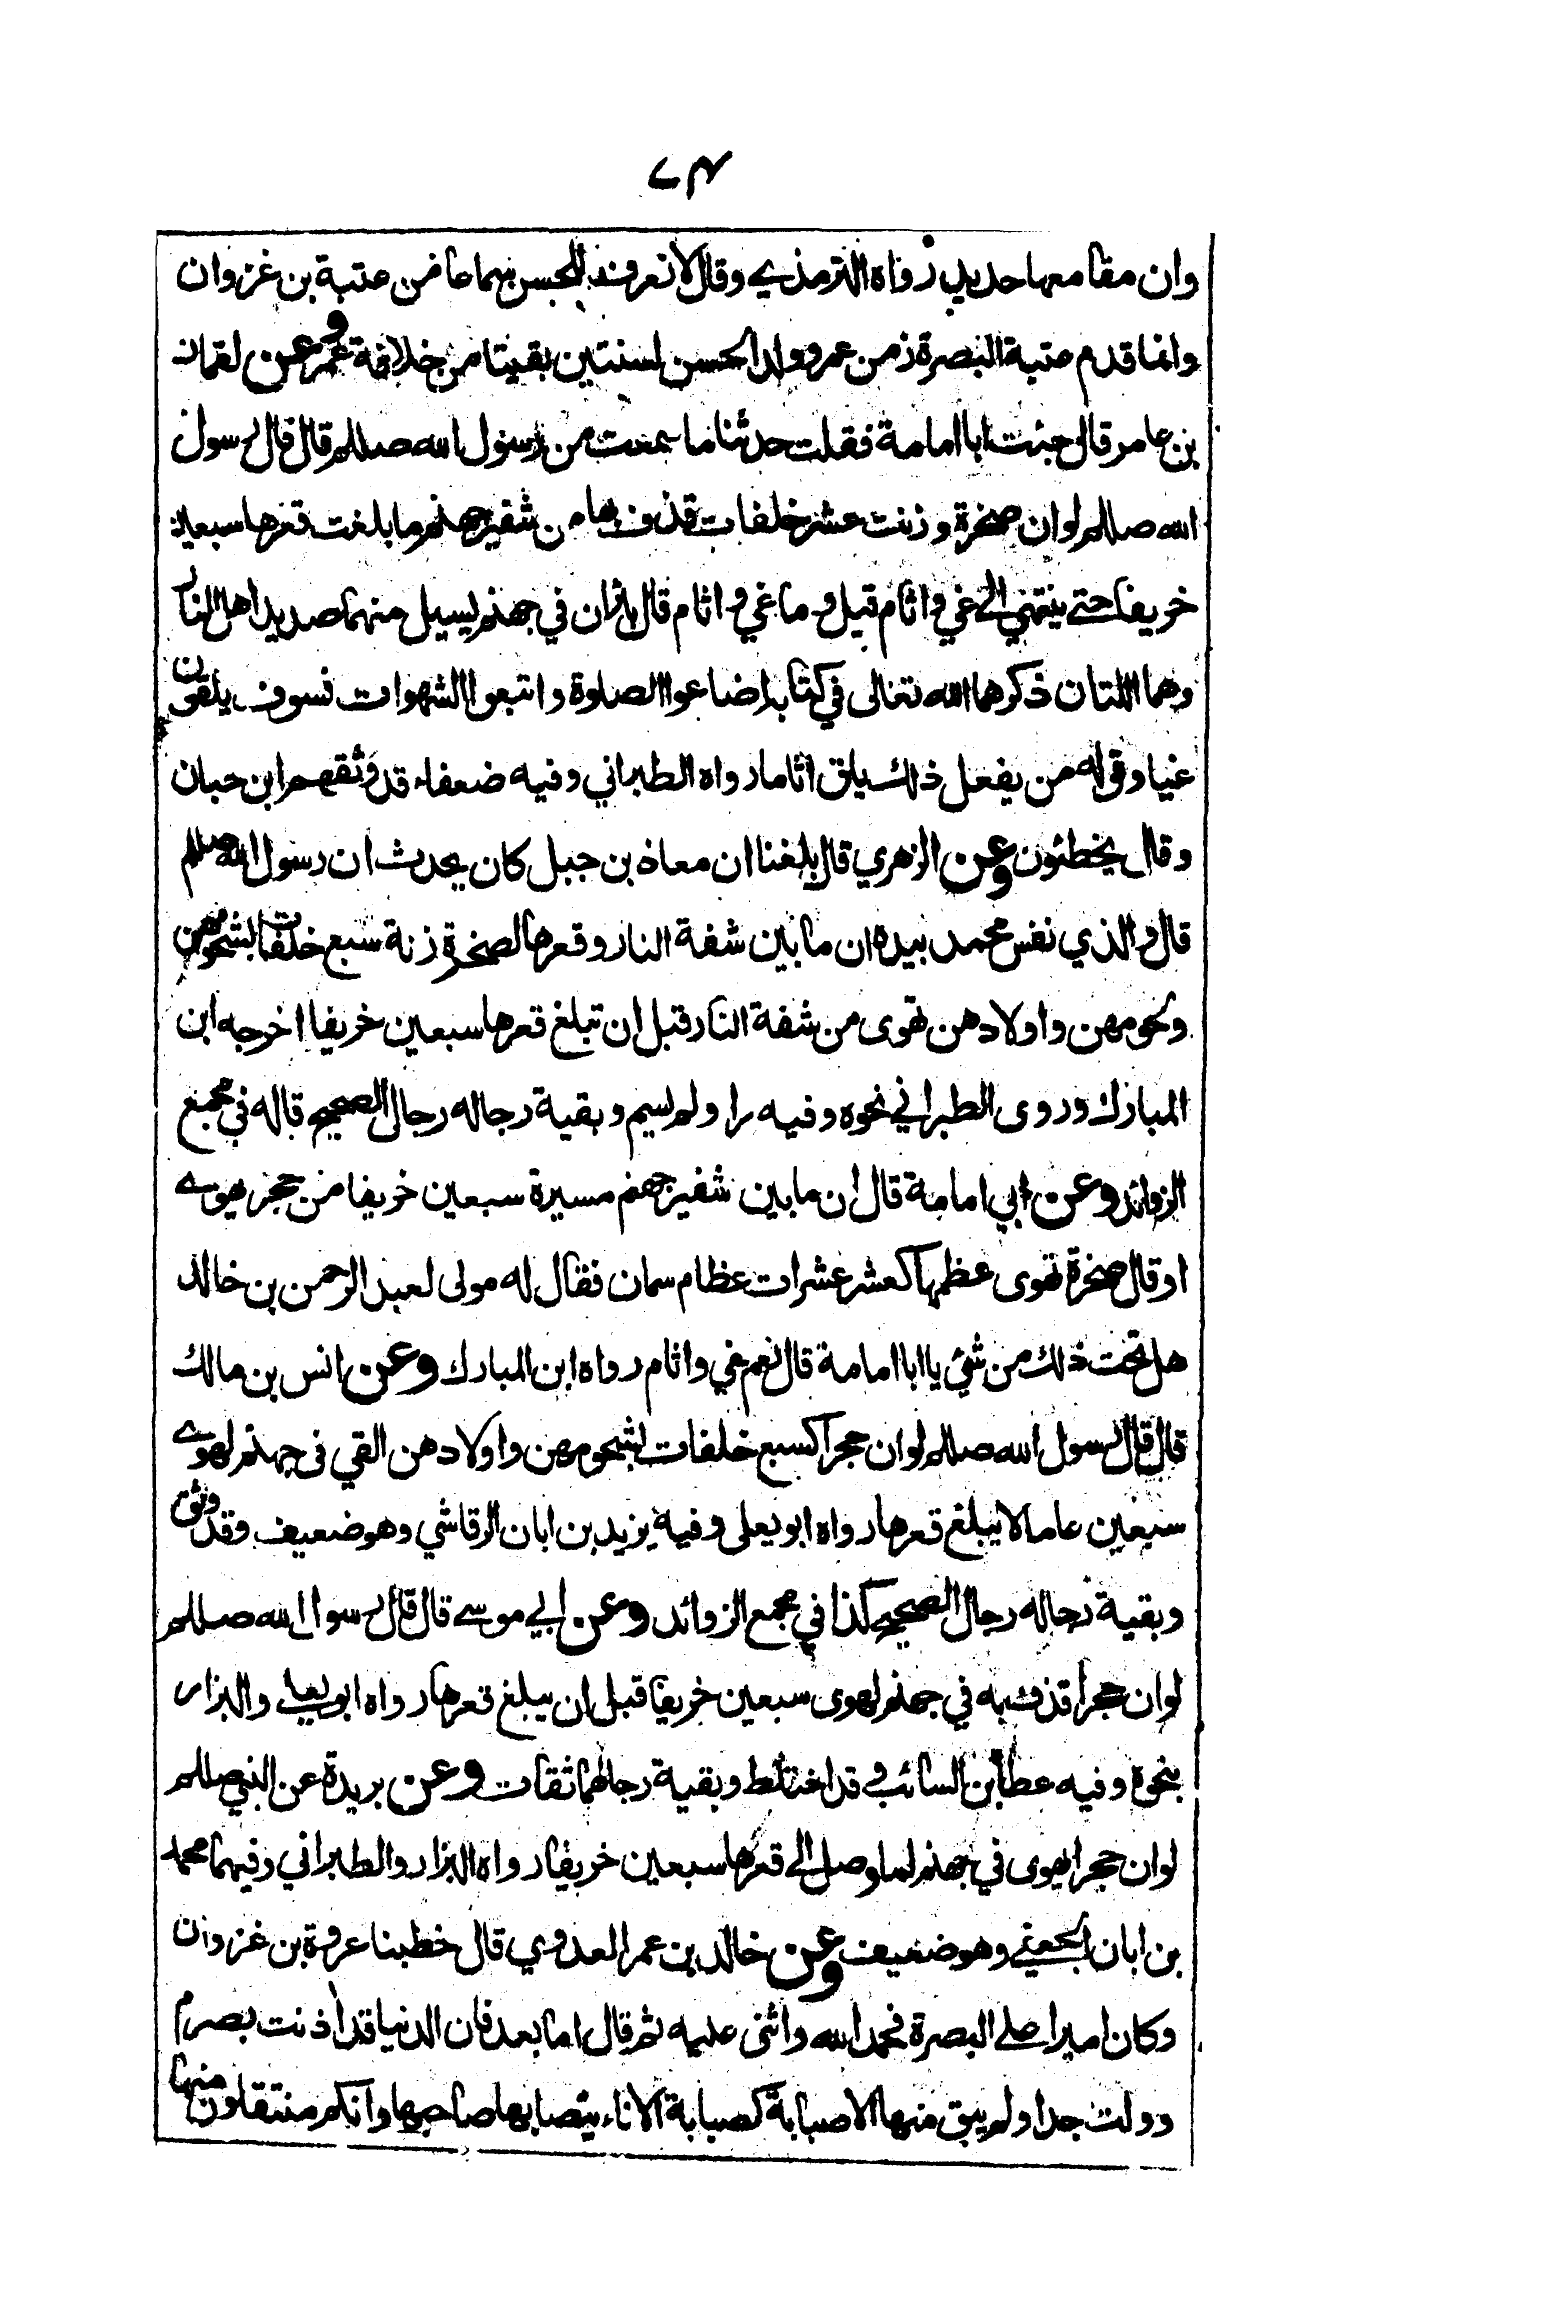 ٧٣
وان مقامعها حديد رواه الترمذي وقال لا نعرف للحسن سماعا من عتبة بن غزوان
وانما قدم عتبة البصرة زمن عمر وولد الحسن لسنتين بقيتا من خلافة عمر وعن لقمان
بن عامر قال جئت ابا امامة فقلت حدثنا ما سمعت من رسول الله صللم قال قال رسول
الله صللم لوان صخرة وزنت عشر خلفات قذف بها من شفير جهنم ما بلغت قعرها سبعين
خريفا حتى ينتهي الى غي واثام قيل وما غي واثام قال بئران في جهنم يسيل منهما صديد اهل النار
وهما اللتان ذكرهما الله تعالى في كتابه اضاعوا الصلوة واتبعوا الشهوات فسوف يلقون
غيا وقوله من يفعل ذلك يلق اثاما رواه الطبراني وفيه ضعفاء قد وثقهم ابن حبان
وقال يخطئون وعن الزهري قال بلغنا ان معاذ بن جبل كان يحدث ان رسول الله صللم
قال والذي نفس محمد بيده ان ما بين شفة النار وقعرها لصخرة زنة سبع خلفات بشحومهن
ولحومهن واولادهن تهوى من شفة النار قبل ان تبلغ قعرها سبعين خريفا اخرجه ابن
المبارك وروى الطبراني نحوه وفيه را ولم يسم وبقية رجاله رجال الصحيح قاله في مجمع
الزوائد وعن ابي امامة قال ان ما بين شفير جهنم مسيرة سبعين خريفا من حجر يهوي
او قال صخرة تهوى عظمها كعشر عشرات عظام سمان فقال له مولى لعبد الرحمن بن خالد
هل تحت ذلك من شئ يا ابا امامة قال نعم غي واثام رواه ابن المبارك وعن انس بن مالك
قال قال رسول الله صللم لوان حجرا كسبع خلفات بشحومهن واولادهن القي في جهنم لهوى
سبعين عاما لا يبلغ قعرها رواه ابو يعلى وفيه يزيد بن ابان الرقاشي وهو ضعيف وقد وثق
وبقية رجاله رجال الصحيح كذا في مجمع الزوائد وعن ابي موسى قال قال رسول الله صللم
لوان حجرا قذف به في جهنم لهوى سبعين خريفا قبل ان يبلغ قعرها رواه ابو يعلى والبزار
بنحوه وفيه عطا بن السائب وقد اختلط وبقية رجالهما ثقات وعن بريدة عن النبي صللم
لوان حجرا يهوى في جهنم لما وصل الى قعرها سبعين خريفا رواه البزار والطبراني وفيهما محمد
بن ابان الجعفي وهو ضعيف وعن خالد بن عمر العدوي قال خطبنا عروة بن غزوان
وكان اميرا على البصرة فحمد الله واثنى عليه ثم قال اما بعد فان الدنيا قد اذنت بصرم
وولت جدا ولم يبق منها الا صبابة كصبابة الاناء يتصابها صاحبها وانكم منتقلون منها